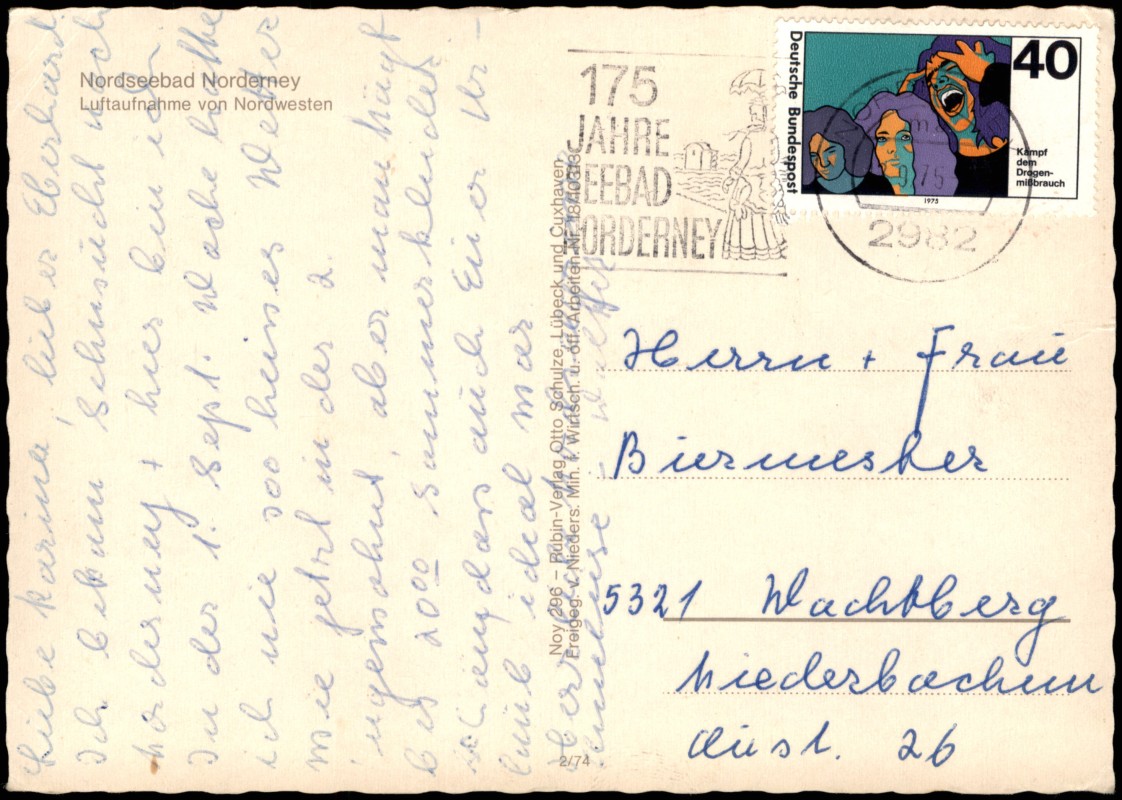 Nordseebad Norderney
Luftaufnahme von Nordwesten
Liebe Karina, lieber Eberhard
Ich bekam Sehnsucht nach
Norderney + hier bin ich
In der 1. Sept. Woche hatte
ich nie so heises Wetter
wie jetzt in der 2.
ungewohnt, aber man hüpft
bis 20⁰⁰ Sommerkleidet
Euer Ur-
laub ideal war
Noy 296 – Rubin-Verlag Otto Schulze, Lübeck und Cuxhaven
Freigeg. v. Nieders. Min. f. Wirtsch. u. öff. Arbeiten Nr.
2/74
175
JAHRE
SEEBAD
NORDERNEY
Deutsche Bundespost
40
Kampf
dem
Drogen-
mißbrauch
1975
2982
Herrn + Frau
5321 Wachtberg
Niederbachem
Aust. 26